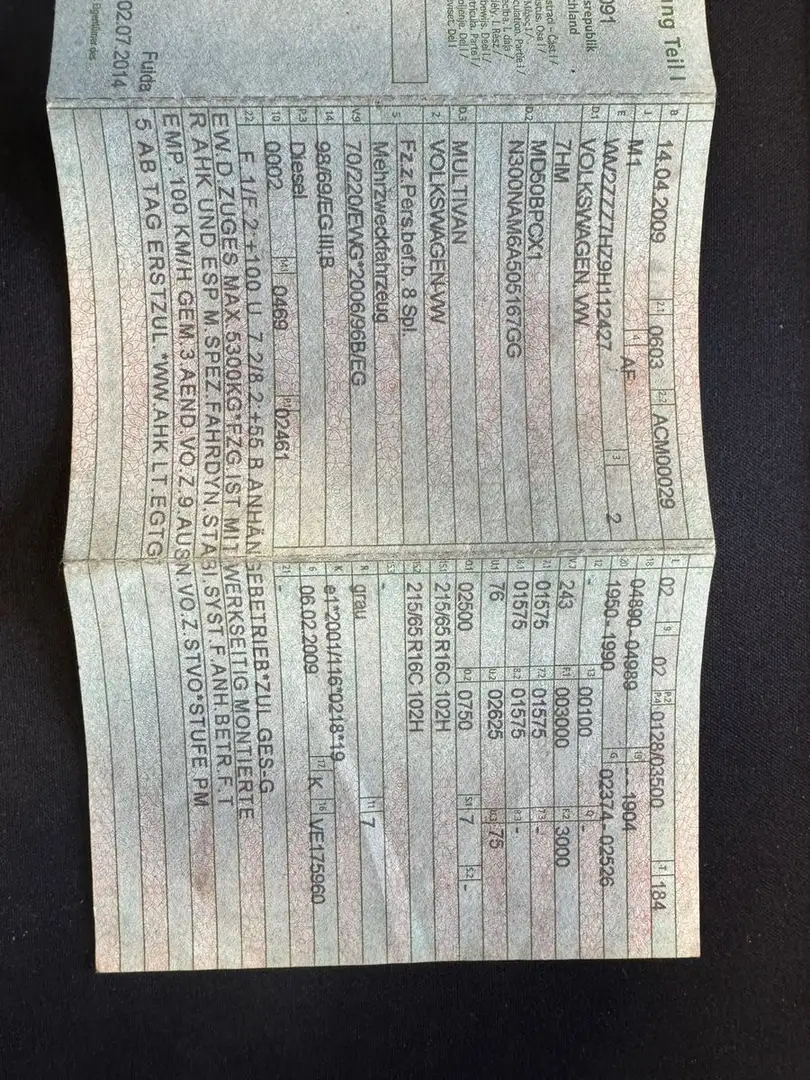 ng Teil I
091
srepublik
hland
Fulda
02.07.2014
B 14.04.2009 2.1 0603 2.2 ACM00029
J M1 4 AF
E WV2ZZZ7HZ9H112427 3 2
D.1 VOLKSWAGEN, VW
7HM
D.2 MD50BPCX1
N300NAM6A505167GG
D.3 MULTIVAN
2 VOLKSWAGEN-VW
5 Fz.z.Pers.bef.b. 8 Spl.
Mehrzweckfahrzeug
V.9 70/220/EWG*2006/96B/EG
14 98/69/EG III;B
P.3 Diesel
10 0002 14.1 0469 P.1 02461
L 02 9 02 P.2 P.4 0128/03500 T 184
18 04890-04989 19 -- 1904
20 1950-1990 G 02374-02526
12 - 13 00100 Q -
V.7 243 F.1 003000 F.2 3000
7.1 01575 7.2 01575 7.3 -
8.1 01575 8.2 01575 8.3 -
U.1 76 U.2 02625 U.3 75
O.1 02500 O.2 0750 S.1 7 S.2 -
15.1 215/65 R16C 102H
15.2 215/65 R16C 102H
15.3 -
R grau 11 7
K e1*2001/116*0218*19
6 06.02.2009 17 K 16 VE175960
21 -
22 F.1/F.2:+100 U. 7.2/8.2:+55 B.ANHÄNGEBETRIEB*ZUL.GES-G
EW.D.ZUGES MAX.5300KG*FZG.IST MIT WERKSEITIG MONTIERTE
R AHK UND ESP M.SPEZ.FAHRDYN.STABI.SYST.F.ANH.BETR.F.T
EMP.100 KM/H GEM.3.AEND.VO.Z.9.AUSN.VO.Z.STVO*STUFE PM
5 AB TAG ERSTZUL.*WW.AHK LT.EGTG